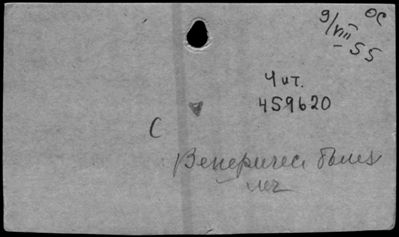 ОС
9/VIII
-55
Чит.
459620
С
Венеричес болез
леч